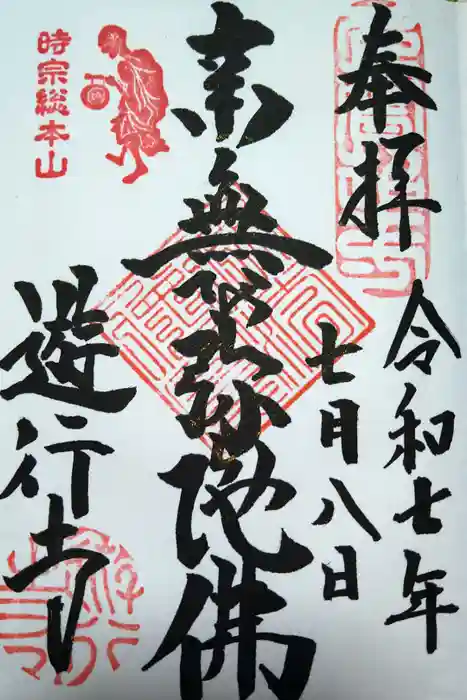 奉拝
令和七年
七月八日
南無阿弥陀佛
遊行寺
時宗総本山